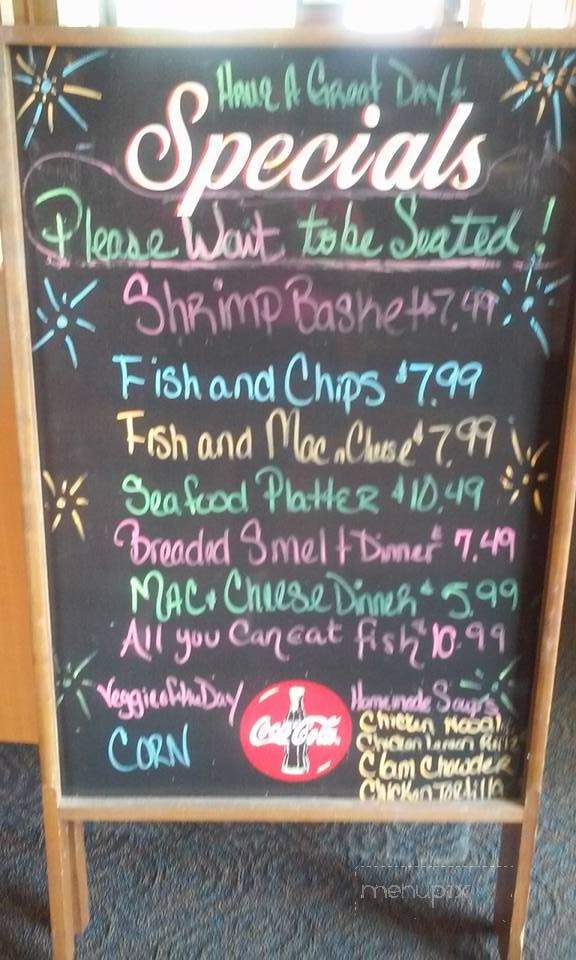 Have A Great Day!
Specials
Please Wait to be Seated!
Shrimp Basket $7.49
Fish and Chips $7.99
Fish and Mac n Cheese $7.99
Seafood Platter $10.49
Breaded Smelt Dinner $7.49
Mac & Cheese Dinner $5.99
All you Can eat fish $10.99
Veggie of the Day
CORN
Coca-Cola
Homemade Soups
Chicken Noodl
Chicken Lemon
Clam Chowder
Chicken Tortilla
menupix